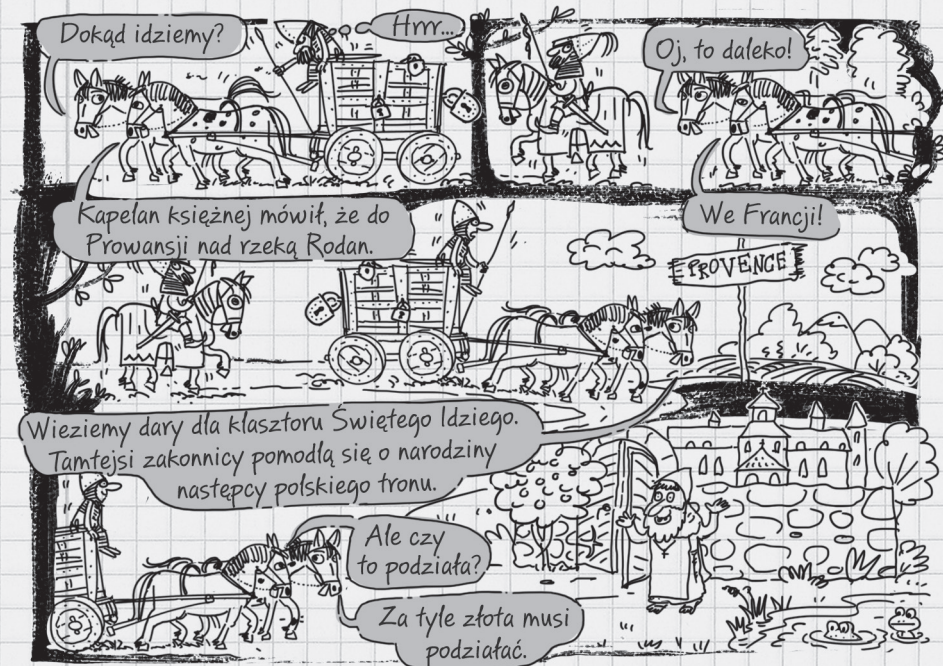 Dokąd idziemy?
Hrrr...
Kapelan księżnej mówił, że do
Prowansji nad rzeką Rodan.
Oj, to daleko!
We Francji!
PROVENCE
Wieziemy dary dla klasztoru Świętego Idziego.
Tamtejsi zakonnicy pomodlą się o narodziny
następcy polskiego tronu.
Ale czy
to podziała?
Za tyle złota musi
podziałać.